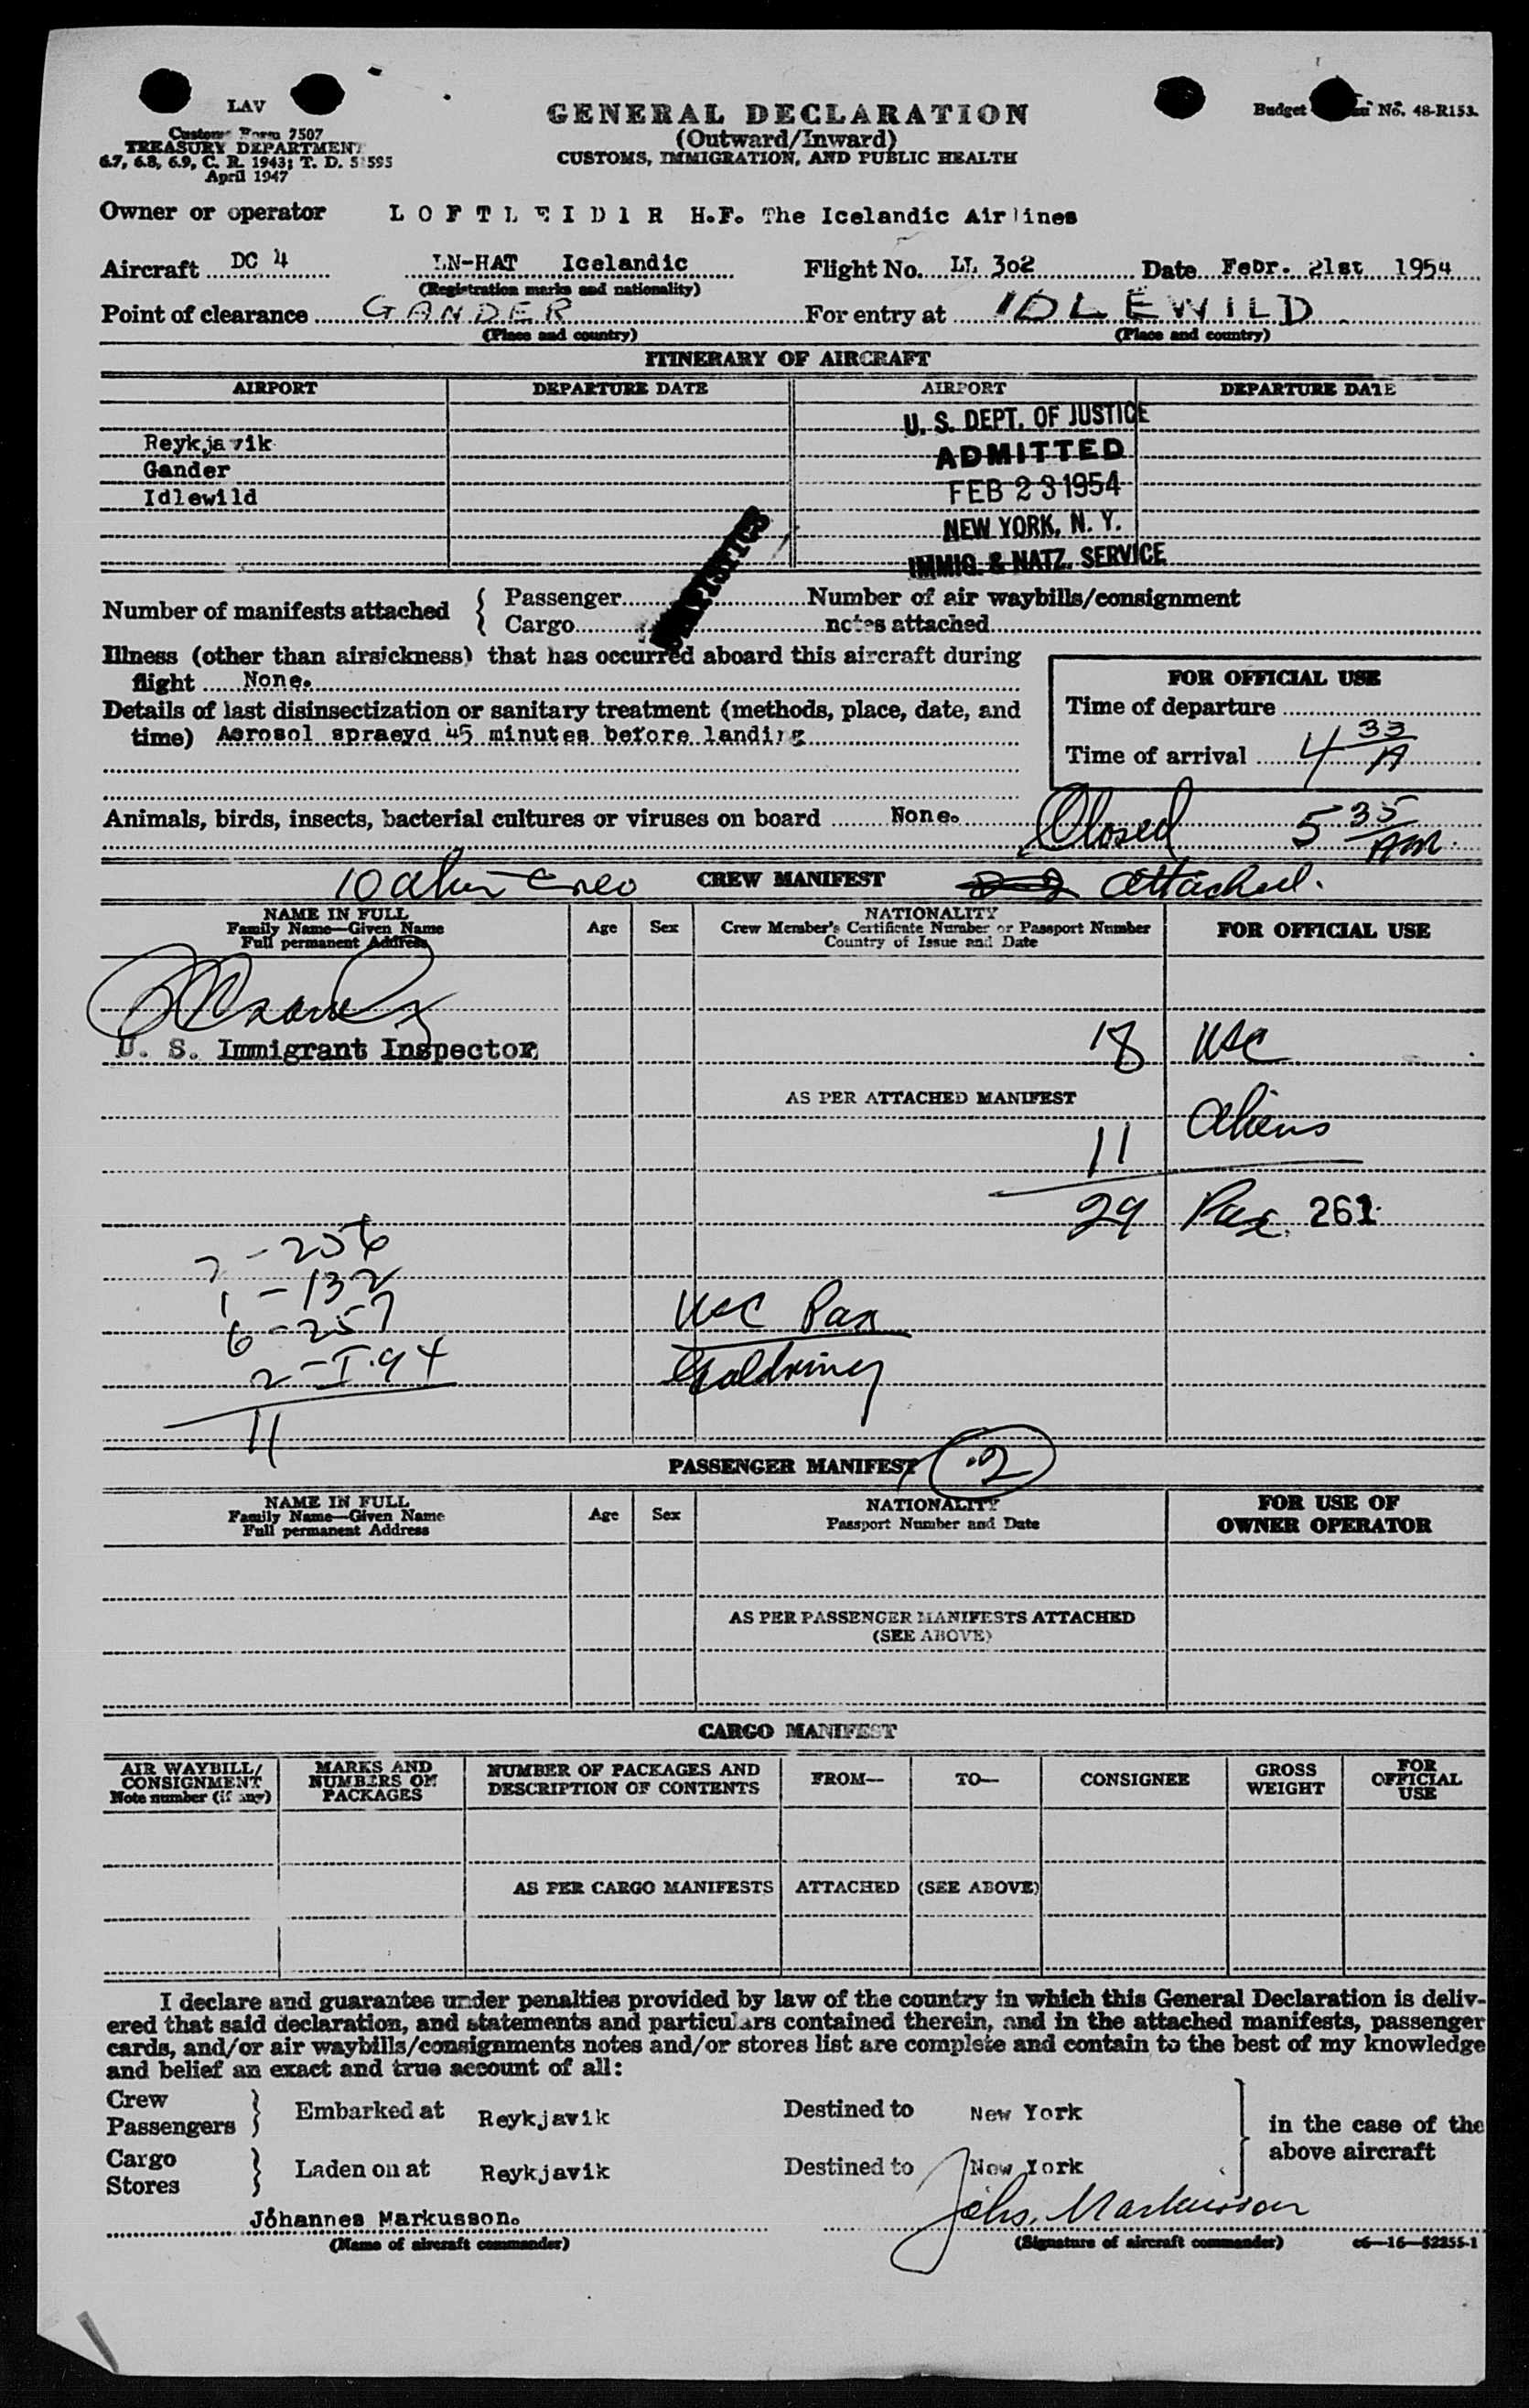 LAV
Customs Form 7507
TREASURY DEPARTMENT
6.7, 6.8, 6.9, C. R. 1943; T. D. 51595
April 1947
GENERAL DECLARATION
(Outward/Inward)
CUSTOMS, IMMIGRATION, AND PUBLIC HEALTH
Budget No. 48-R153.
Owner or operator L O F T L E I D I R H.F. The Icelandic Airlines
Aircraft DC 4 LN-HAT Icelandic Flight No. LL 302 Date Febr. 21st 1954
(Registration marks and nationality)
Point of clearance GANDER For entry at IDLEWILD
(Place and country) (Place and country)
ITINERARY OF AIRCRAFT
AIRPORT DEPARTURE DATE AIRPORT DEPARTURE DATE
U. S. DEPT. OF JUSTICE
Reykjavik ADMITTED
Gander
Idlewild FEB 23 1954
NEW YORK, N. Y.
IMMIG. & NATZ. SERVICE
STATISTICS
Number of manifests attached { Passenger Number of air waybills/consignment
Cargo notes attached
Illness (other than airsickness) that has occurred aboard this aircraft during
flight None.
FOR OFFICIAL USE
Details of last disinsectization or sanitary treatment (methods, place, date, and
time) Aerosol spraeyd 45 minutes before landing
Time of departure
Time of arrival 4 33 A
Animals, birds, insects, bacterial cultures or viruses on board None.
Closed 5 35 AM
10 alien crew CREW MANIFEST attached.
NAME IN FULL
Family Name—Given Name
Full permanent Address
Age Sex
NATIONALITY
Crew Member's Certificate Number or Passport Number
Country of Issue and Date
FOR OFFICIAL USE
U. S. Immigrant Inspector
18 USC
AS PER ATTACHED MANIFEST
11 Aliens
29 Pax. 261
2 - 256
1 - 132
6 - 257
2 - I.94
11
USC Pax
PASSENGER MANIFEST 2
NAME IN FULL
Family Name—Given Name
Full permanent Address
Age Sex
NATIONALITY
Passport Number and Date
FOR USE OF
OWNER OPERATOR
AS PER PASSENGER MANIFESTS ATTACHED
(SEE ABOVE)
CARGO MANIFEST
AIR WAYBILL/
CONSIGNMENT
Note number (if any)
MARKS AND
NUMBERS ON
PACKAGES
NUMBER OF PACKAGES AND
DESCRIPTION OF CONTENTS
FROM— TO— CONSIGNEE
GROSS
WEIGHT
FOR
OFFICIAL
USE
AS PER CARGO MANIFESTS ATTACHED (SEE ABOVE)
I declare and guarantee under penalties provided by law of the country in which this General Declaration is deliv-
ered that said declaration, and statements and particulars contained therein, and in the attached manifests, passenger
cards, and/or air waybills/consignments notes and/or stores list are complete and contain to the best of my knowledge
and belief an exact and true account of all:
Crew
Passengers } Embarked at Reykjavik Destined to New York
in the case of the
above aircraft
Cargo
Stores } Laden on at Reykjavik Destined to New York
Jóhannes Markusson. Johs. Markusson
(Name of aircraft commander) (Signature of aircraft commander) c6—16—52255-1